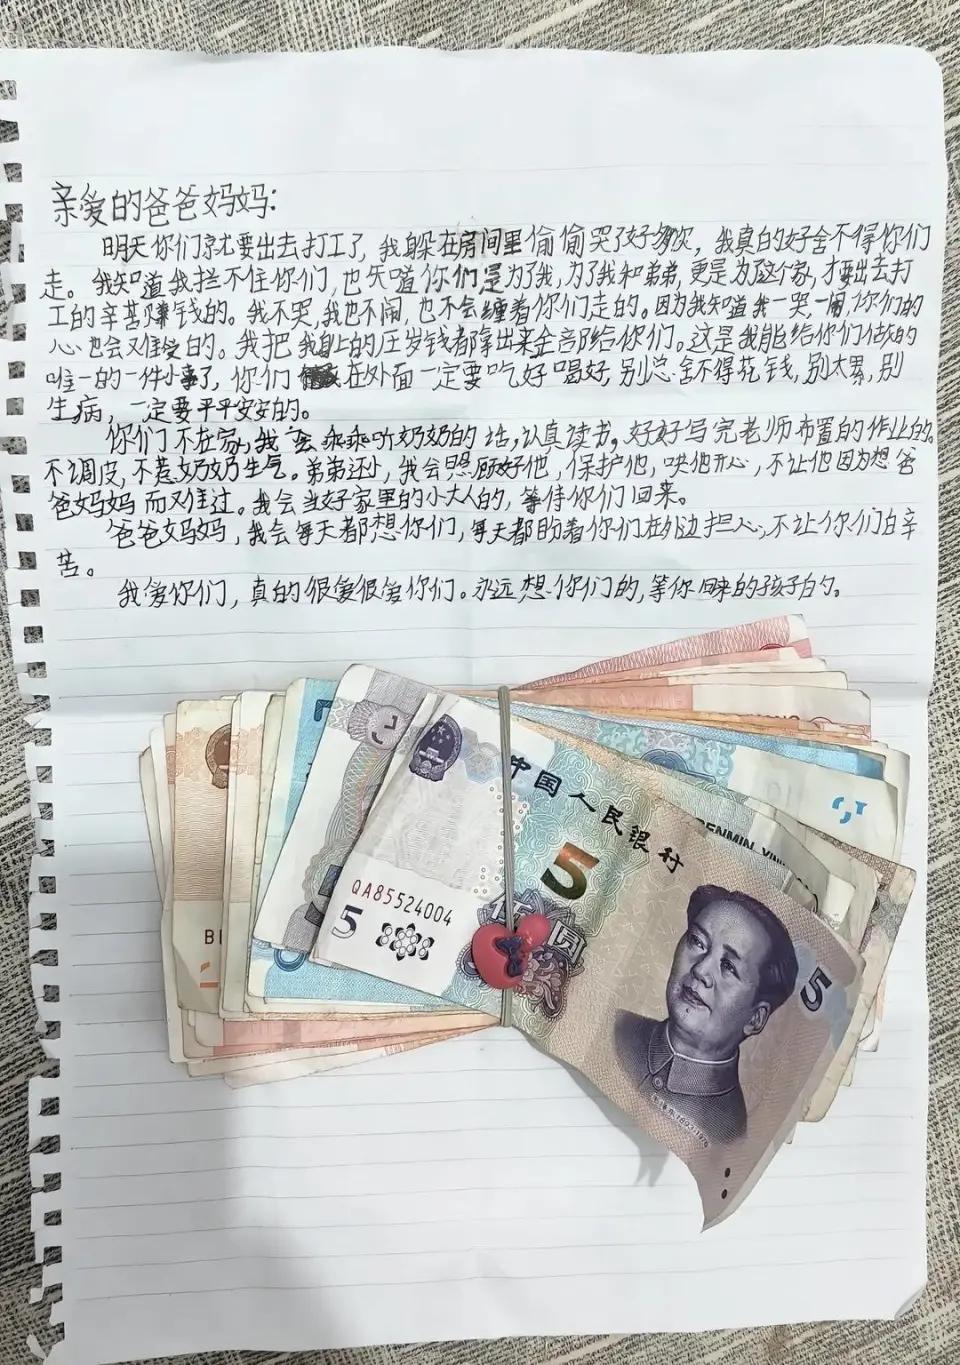 亲爱的爸爸妈妈:
明天你们就要出去打工了,我躲在房间里偷偷哭了好多次,我真的好舍不得你们
走。我知道我拦不住你们,也知道你们是为了我,为了我和弟弟,更是为了这个家,才要出去打
工的辛苦赚钱的。我不哭,我也不闹,也不会缠着你们走的。因为我知道我一哭,一闹,你们的
心也会又难受的。我把我身上的压岁钱都拿出来全部给你们。这是我能给你们做的
唯一的一件小事了,你们在外面一定要吃好喝好,别总舍不得花钱,别太累,别
生病,一定要平平安安的。
你们不在家,我会乖乖听奶奶的话,认真读书,好好写完老师布置的作业的。
不调皮,不惹奶奶生气。弟弟还小,我会照顾好他,保护他,哄他开心,不让他因为想爸
爸妈妈而又难过。我会当好家里的小大人的,等待你们回来。
爸爸妈妈,我会每天都想你们,每天都盼着你们在外边担心,不让你们白辛
苦。
我爱你们,真的很爱很爱你们。永远想你们的,等你回来的孩子的。
中国人民银行
RENMIN YIN
5
QA85524004
5
伍圆
5
BI